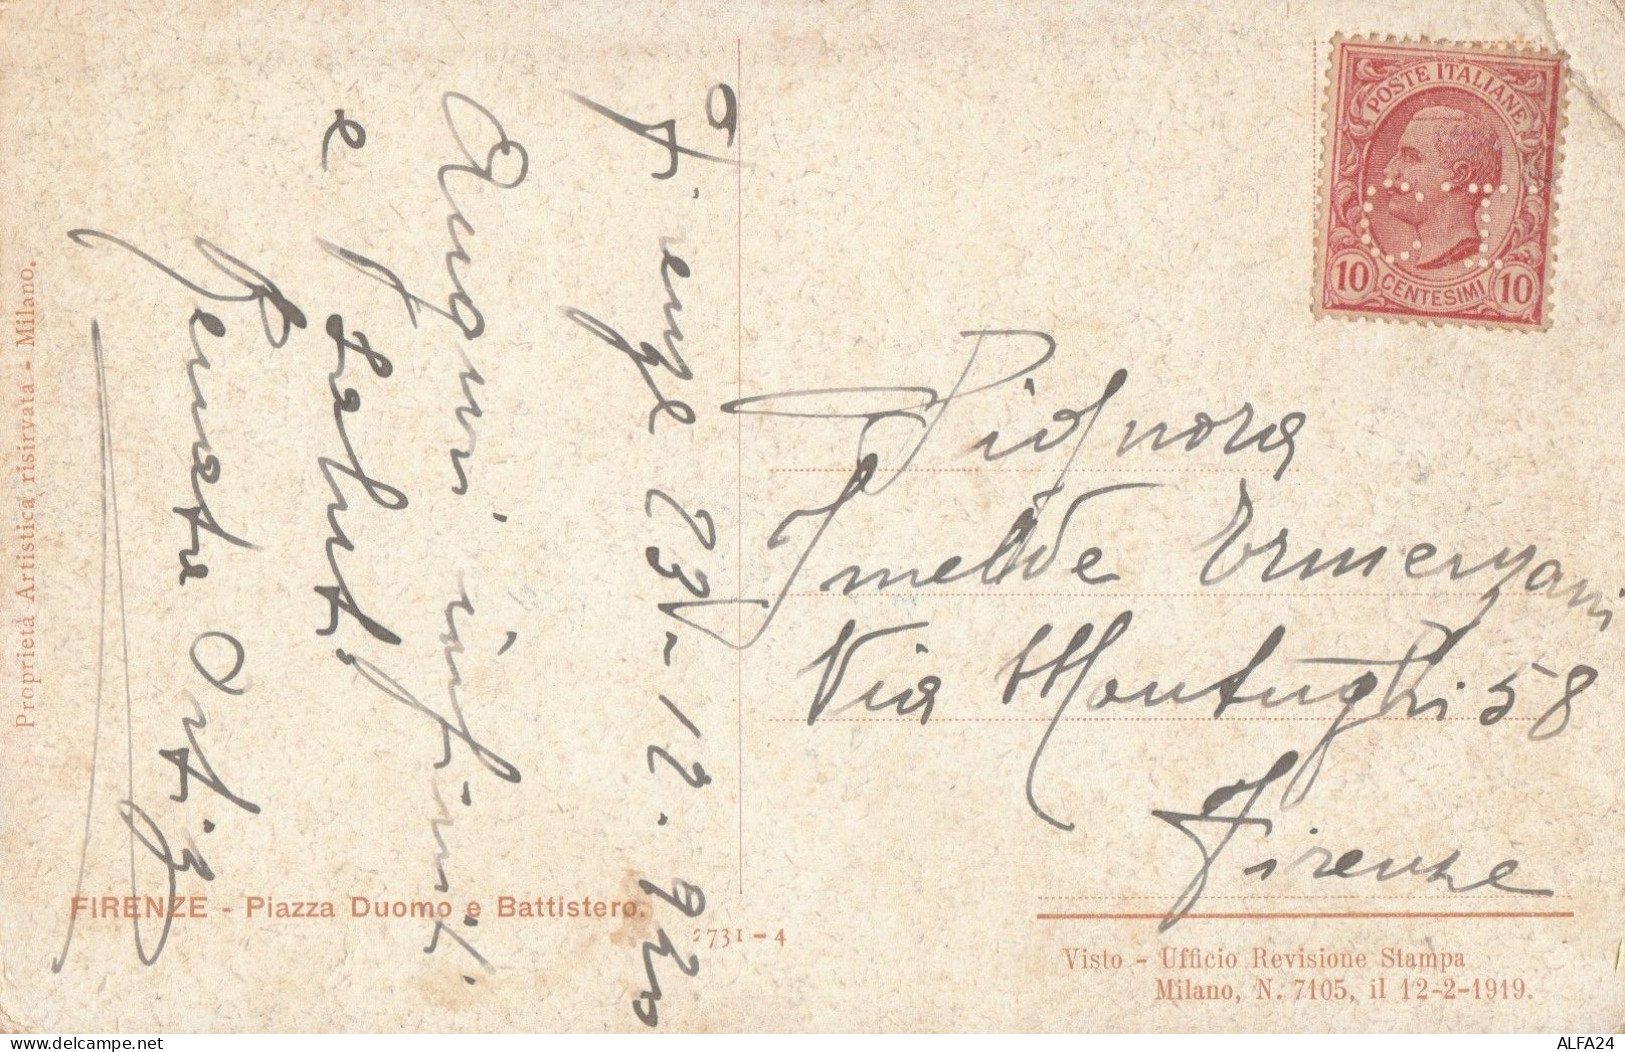 POSTE ITALIANE
10 CENTESIMI 10
Firenze 23-12.920
Auguri infiniti.
e saluti
Renata Ortiz
Signora
Imelde Ermerzani
Via Montughi 58
Firenze
Proprietà Artistica risirvata - Milano.
FIRENZE - Piazza Duomo e Battistero.
2731-4
Visto - Ufficio Revisione Stampa
Milano, N. 7105, il 12-2-1919.
delcampe.net
ALFA24